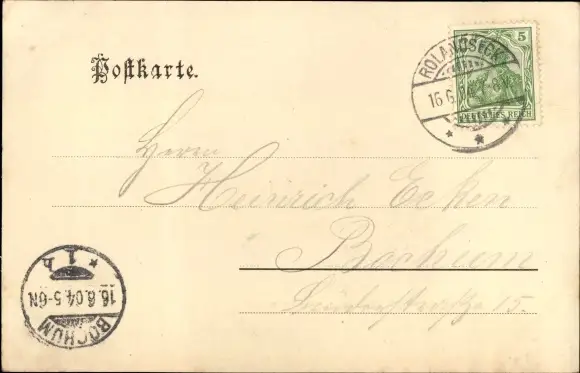 Postkarte.
5
DEUTSCHES REICH
ROLANDSECK
16.6.
Herrn
Heinrich Ecken
Bochum
15.
BOCHUM
16.6.04.5-6N
* 1 h